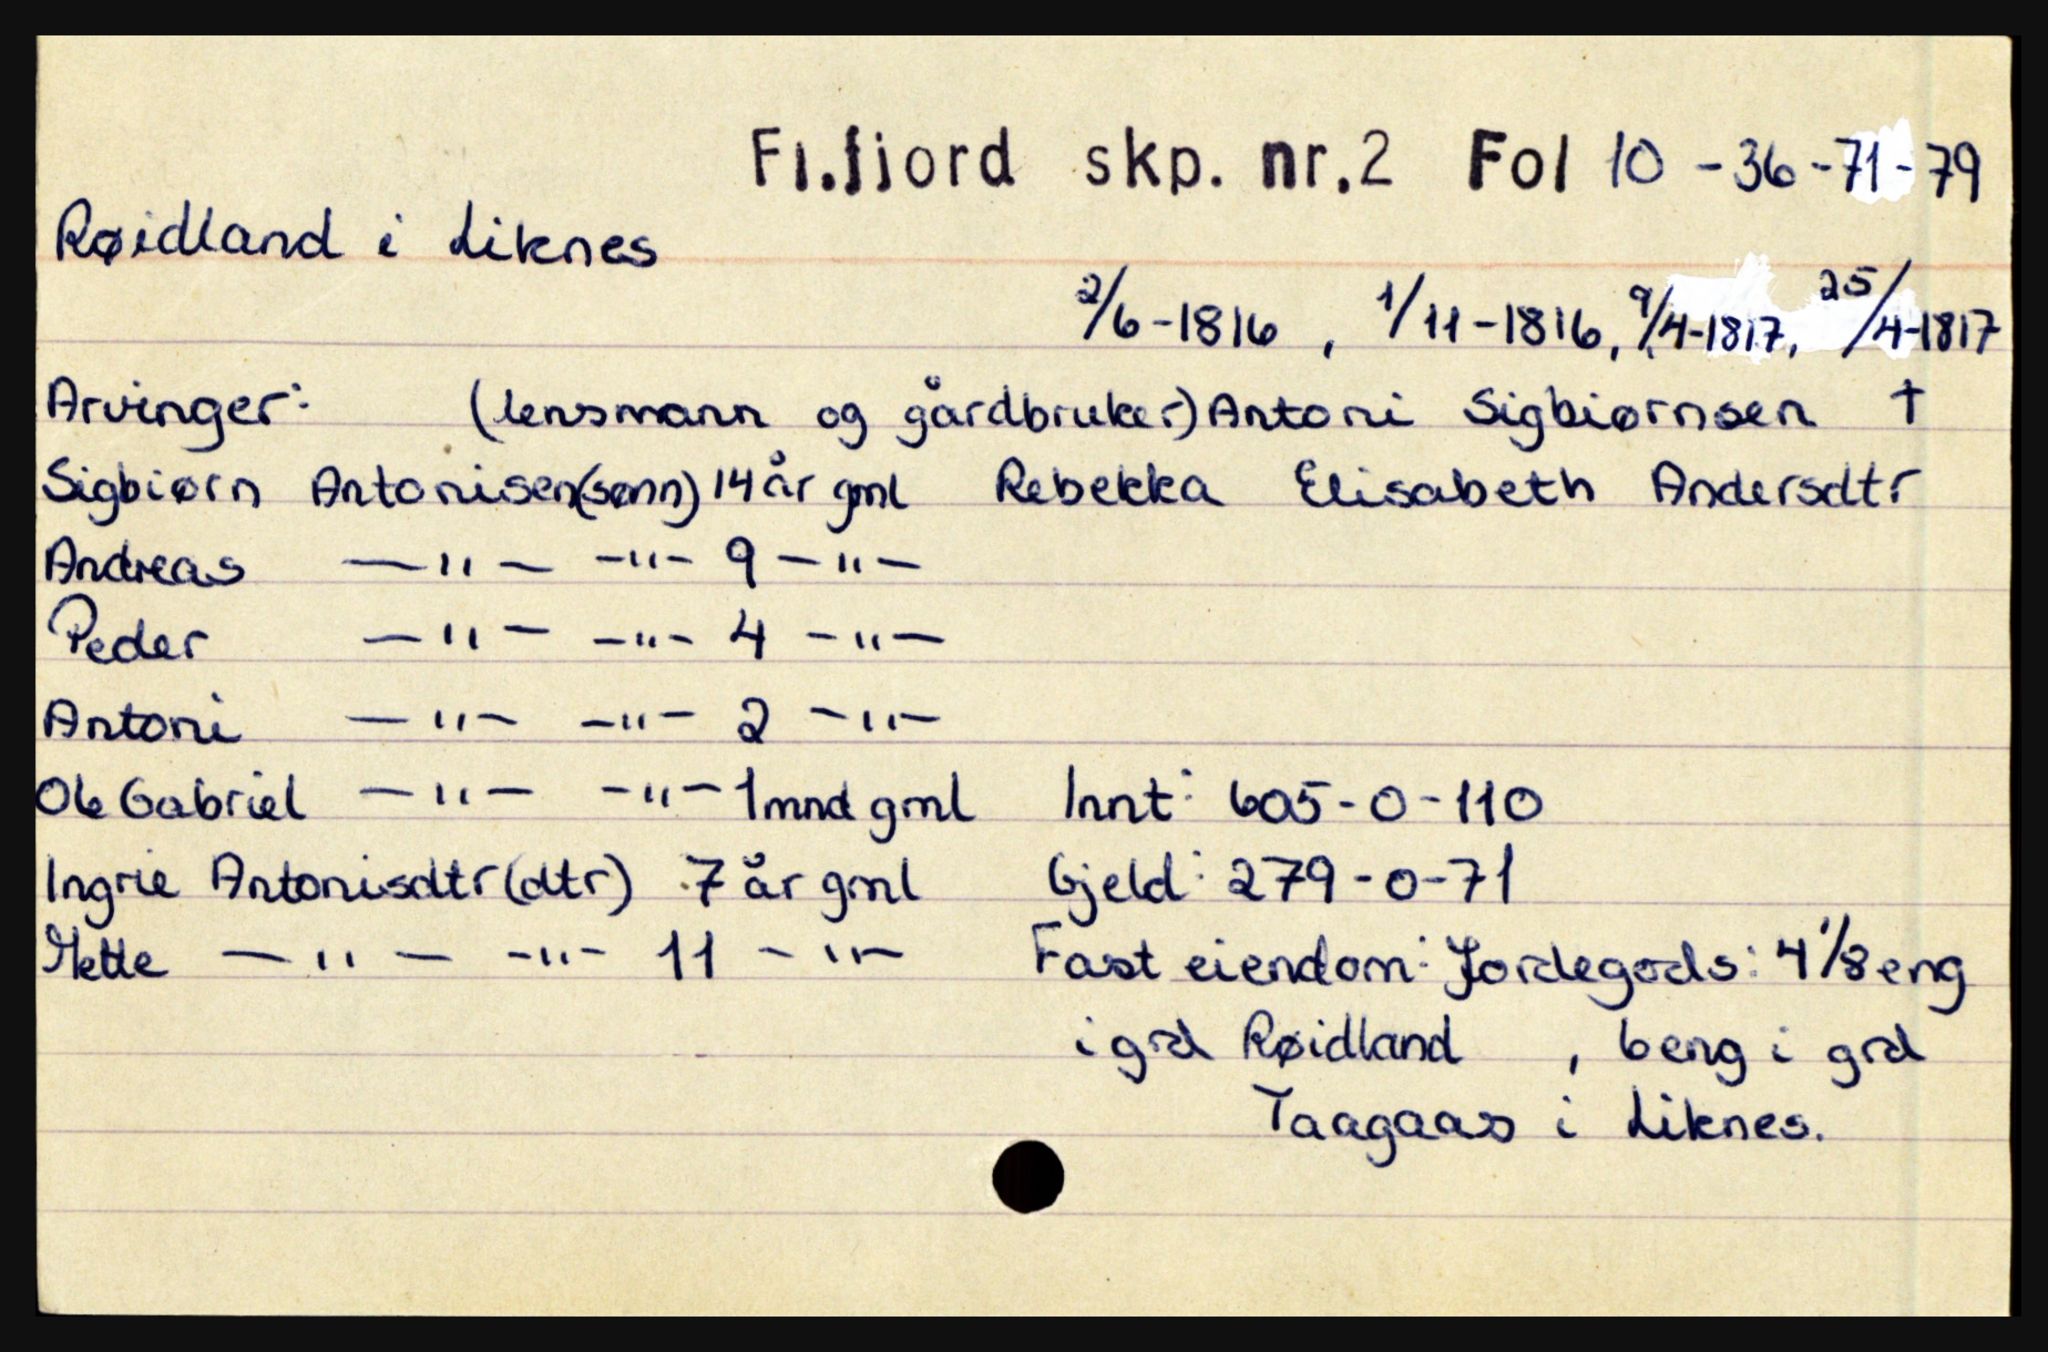 Fl.fjord skp. nr.2 Fol 10 - 36 - 71 - 79
Røidland i Liknes
2/6-1816 , 1/11-1816, 9/4-1817, 25/4-1817
Arvinger: (lensmann og gårdbruker) Antoni Sigbiørnsen †
Sigbiørn Antonisen (sønn) 14 år gml Rebekka Elisabeth Andersdtr
Andreas —"— —"— 9 —"—
Peder —"— —"— 4 —"—
Antoni —"— —"— 2 —"—
Ole Gabriel —"— —"— 1 mnd gml Innt: 605-0-110
Ingrie Antonisdtr (dtr) 7 år gml Gjeld: 279-0-71
Mette —"— —"— 11 —"— Fast eiendom: Jordegods: 4 1/8 eng
i grd Røidland , 6 eng i grd
Taagaas i Liknes.